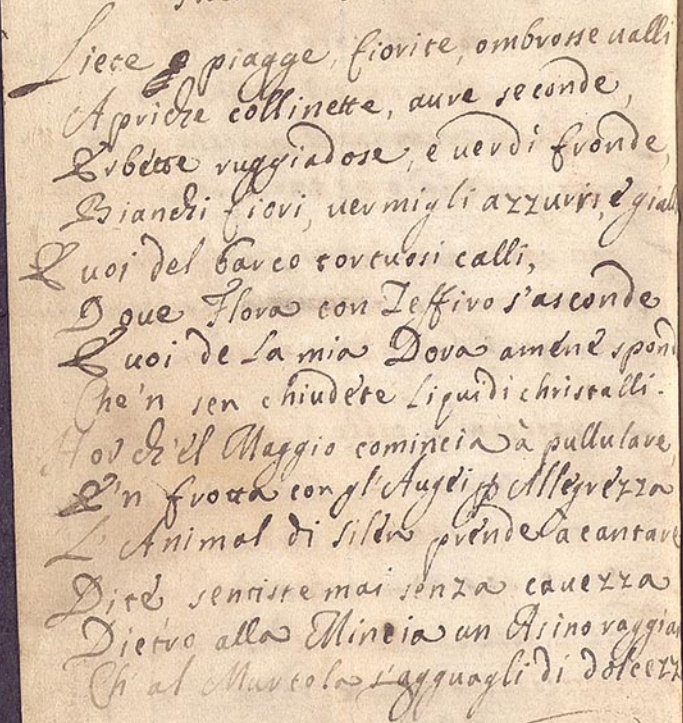 Liete e piagge, fiorite, ombrosse ualli
Apriche collinette, aure seconde,
Erbette ruggiadose, e uerdi fronde,
Bianchi fiori, uermigli azzurri, é gial
E uoi del barco tortuosi calli,
Doue Flora con Zeffiro s'asconde
E uoi de la mia Dora amene spond
Che'n sen chiudete liquidi christalli.
Hor ch'el Maggio comincia à pullulare,
E'n frotta con gl'Augei p Allegrezza
L'Animal di Silen prende à cantare
Dite sentiste mai senza cauezza
Dietro alla Mincia un Asino raggia
Ch'al Murtola s'agguagli di dolcezz